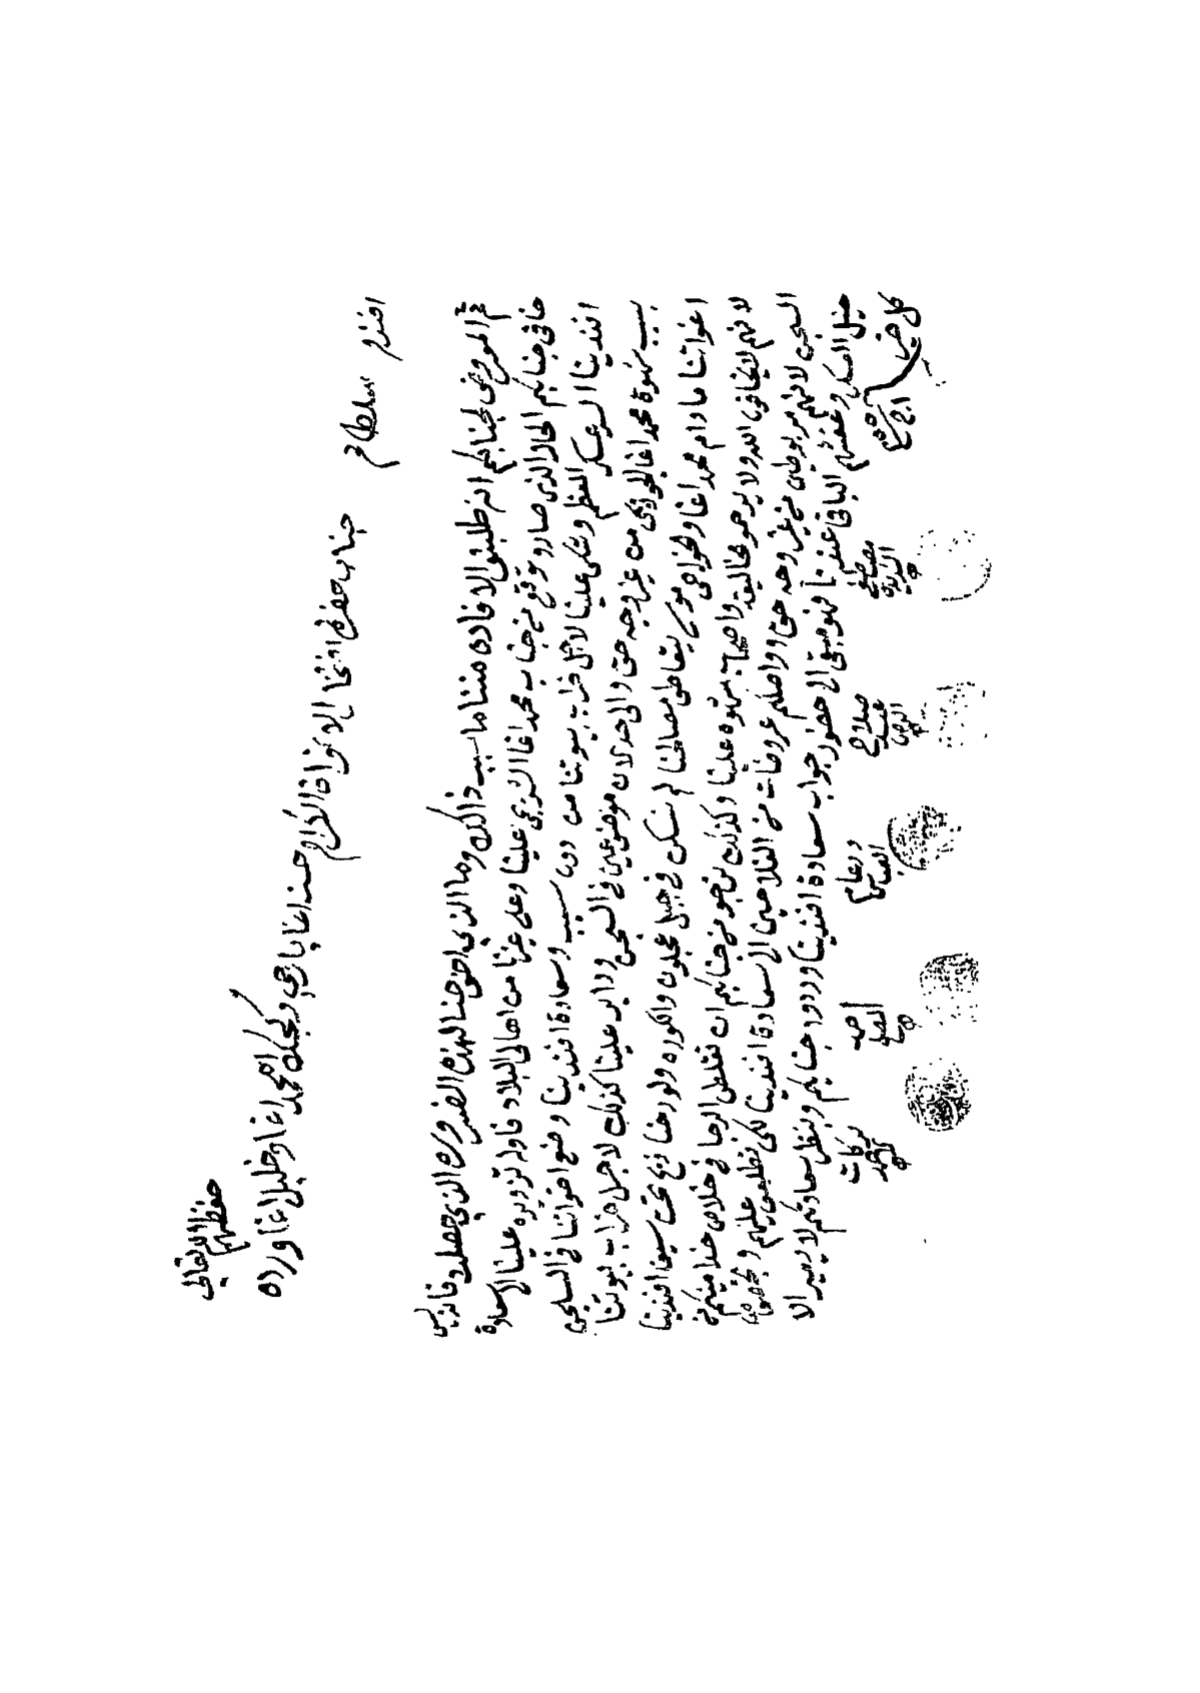 افندم سلطانم
جناب حضرة افتخار الاغوات الكرام حسن اغا يازجي وكجك محمد اغا وخليل اغا ورده
حفظهم الله تعالى
ثم المعروض لجنابكم انه طلبتو الافاده مننا ما سبب ذالك وما الذي احوجنا لهذه الضروره الذي حصلت فاندي ليس
خافي جنابكم الحال الذي صار وتوقع من جناب محمد اغا علينا وعلى غيرنا من اهالي البلاد فاوله تزويره علينا الى سعادة
افندينا السر عسكر المعظم وشكى علينا لاجل خراب بيوتنا من دون سبب وسعادة افندينا وضع اخواننا في السجن
بسبب شهوة محمد اغا من غير وجه حق والى حد الان موضوعين في السجن وداير علينا كذلك لاجل خراب بيوتنا
اغواتنا ما دام محمد اغا والخواجه موسى يتعاطى مصالحنا لم نسكن في جبل عجلون والكوره ولو رحنا ذبح تحت سيف افندينا
لانهم لا يخافون الله ولا يرحمو مخاليقه واصحاب شهوه علينا وكذلك نرجو من جنابكم ان تقبلو الرجا في خلاص خدامينكم من
السجن لانهم مربوطين من غير وجه حق وواصلكم عروضات من الفلاحين الى سعادة افندينا لكي تطلعون عليهم وبخصوص
خيل العسكر وعفشهم الباقي عندنا فهو يبقى الى حضور جواب سعادة افندينا وردود جنابكم وبنظر سعادتكم لا يصير الا
كل خير
مصطفى
صلاح عبد
درغام العباس
بركات